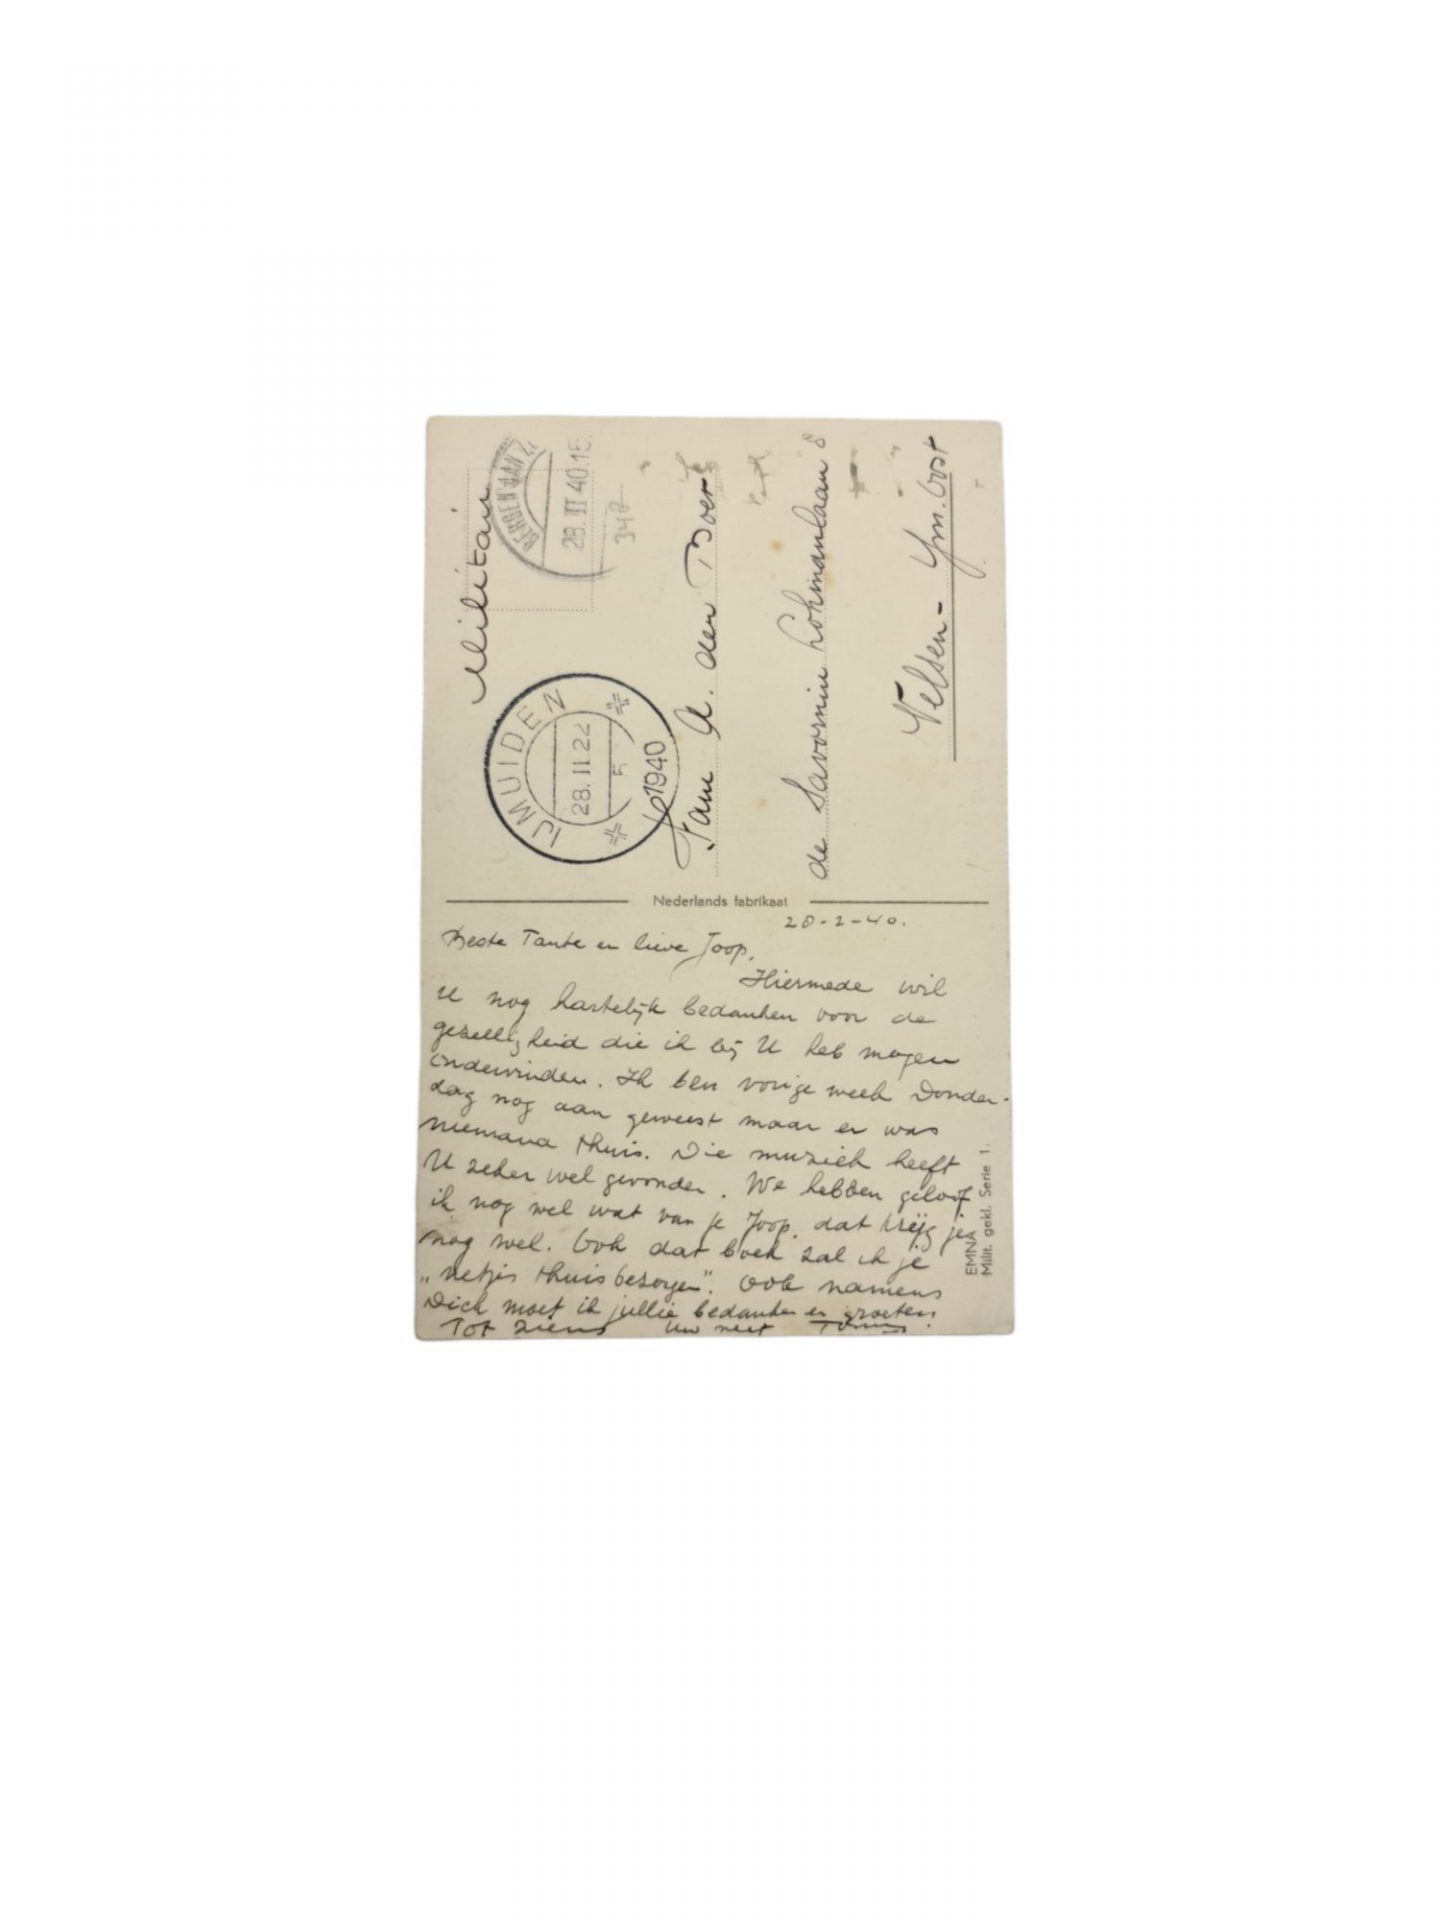 Militair
BERGEN AAN Z
28.II 40.15
348
IJMUIDEN
28.II.22
5
1940
Fam A. den Boer
de Savornin Lohmanlaan 8
Velsen- Ym. Oost
Nederlands fabrikaat
28-2-40.
Beste Tante en lieve Joop,
Hiermede wil
U nog hartelijk bedanken voor de
gezelligheid die ik bij U heb mogen
ondervinden. Ik ben vorige week Donder-
dag nog aan geweest maar er was
niemand thuis. Die muziek heeft
U zeker wel gevonden. We hebben geloof
ik nog wel wat van je Joop, dat krijg je
nog wel. Ook dat boek zal ik je
„netjes thuisbezorgen". Ook namens
Dick moet ik jullie bedanken en groeten.
Tot ziens Uw neef
EMNA
Milit. gekl. Serie 1.